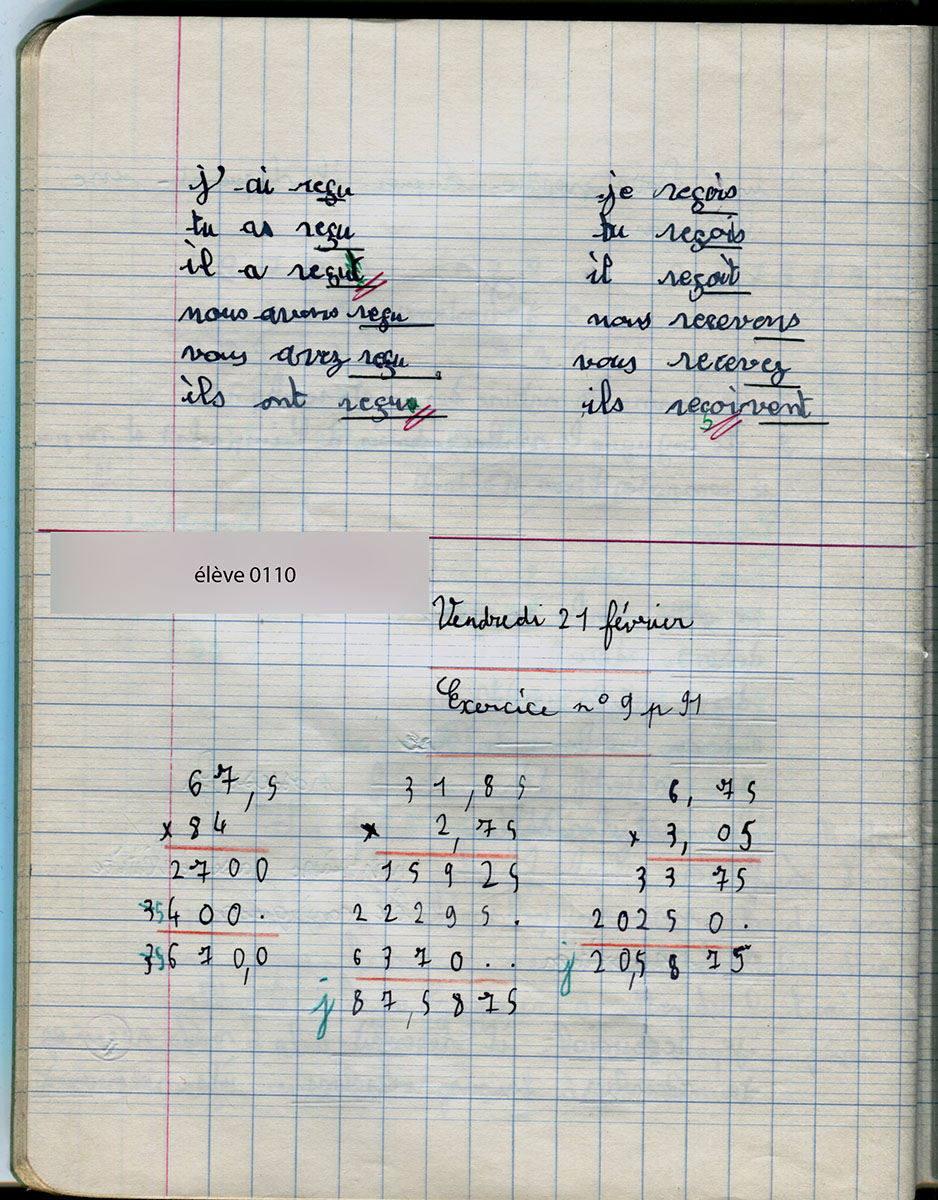 j'ai reçu
tu as reçu
il a reçut
nous avons reçu
vous avez reçu
ils ont reçu
je reçois
tu reçois
il reçoit
nous recevons
vous recevez
ils reçoivent
élève 0110
Vendredi 21 février
Exercice n° 9 p 91
67,5
x 84
2700
5400.
5670,0
31,85
x 2,75
15925
22295.
6370..
j 87,5875
6,75
x 3,05
3375
20250.
j 20,5875